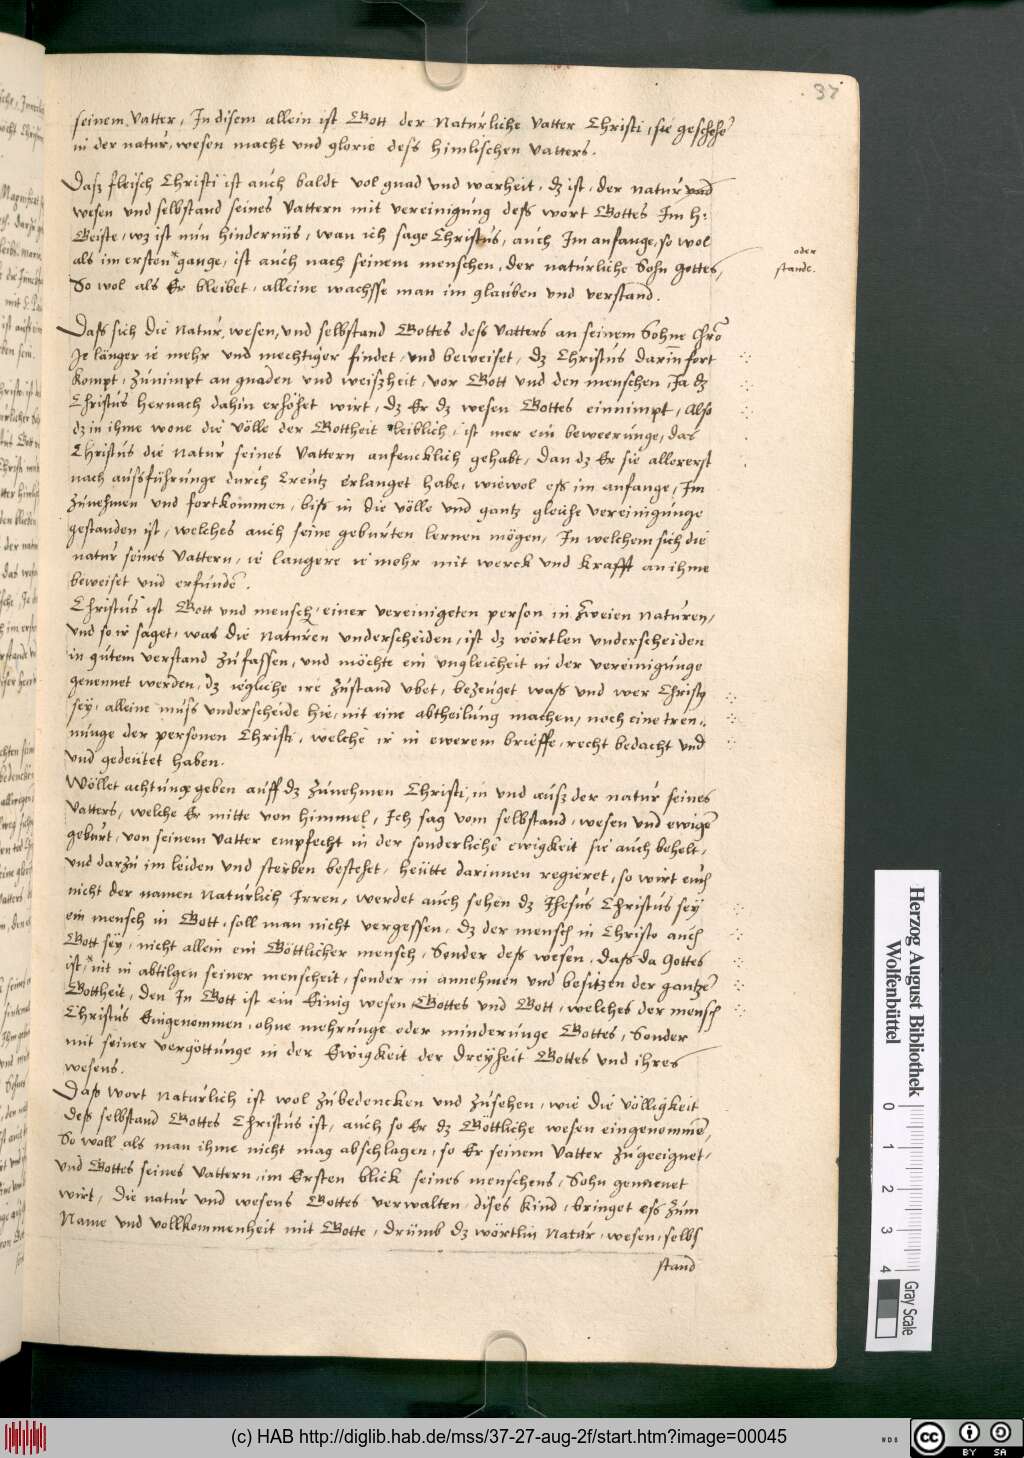 37
seinem Vatter, In disem allein ist Gott der Natürliche Vatter Christi, sie geschehe
in der natur, wesen macht vnd glorie dess himlischen vatters.
Dasz fleisch Christi ist auch baldt vol gnad vnd warheit, dz ist, der natur vnd
wesen vnd selbstand seines Vattern mit vereinigung dess wort Gottes Im h:
Geiste, wz ist nun hindernüs, wan ich sage Christus, auch Im anfange, so wol
als im ersten gange, ist auch nach seinem menschen, der natürliche Sohn gottes,
oder
stande.
So wol als Er bleibet, alleine wachsse man im glauben vnd verstand.
Dass sich die natur, wesen, vnd selbstand Gottes dess Vatters an seinem Sohne Chro
Je länger ie mehr vnd mechtiger findet, vnd beweiset, dz Christus darinn fort
kompt, zunimpt an gnaden vnd weiszheit, vor Gott vnd den menschen, Ja dz
Christus hernach dahin erhöhet wirt, dz Er dz wesen Gottes einnimpt, also
dz in ihme wone die völle der Gottheit leiblich, ist mer ein beweerunge, das
Christus die natur seines Vattern anfencklich gehabt, dan dz Er sie allererst
nach aussführunge durch Creutz erlanget habe, wiewol ess im anfange, Im
zunehmen vnd fortkommen, biss in die völle vnd gantz gleiche vereinigunge
gestanden ist, welches auch seine geburten lernen mögen, In welchem sich die
natur seines Vattern, ie langere ie mehr mit werck vnd krafft an ihme
beweiset vnd erfunde.
Christus ist Gott vnd mensch, einer vereinigeten person in zweien Naturen,
vnd so ir saget, was die Naturen vnderscheiden, ist dz wörtlen vnderscheiden
in gutem verstand zu fassen, vnd möchte ein vngleicheit in der vereinigunge
genennet werden, dz iegliche ire zustand vbet, bezeuget wass vnd wer Christus
sey, alleine muss vnderscheide hie, nit eine abtheilung machen, noch eine tren
nunge der personen Christi, welche ir in ewerem brieffe, recht bedacht vnd
vnd gedeutet haben.
Wöllet achtung geben auff dz zunehmen Christi, in vnd ausz der natur seines
Vatters, welche Er mitte von himmel, Ich sag vom selbstand, wesen vnd ewige
geburt, von seinem Vatter empfecht in der sonderliche ewigkeit sie auch behelt,
vnd darzu im leiden vnd sterben bestehet, heütte darinnen regieret, so wirt euch
nicht der namen Natürlich Irren, werdet auch sehen dz Jhesus Christus sey
ein mensch in Gott, soll man nicht vergessen, dz der mensch in Christo auch
Gott sey, nicht allein ein Göttlicher mensch, Sonder dess wesen, dass da Gottes
ist, nit in abtilgen seiner menscheit, sonder in annehmen vnd besitzen der gantze
Gottheit, den In Gott ist ein Einig wesen Gottes vnd Gott, welches der mensch
Christus Eingenommen, ohne mehrunge oder minderunge Gottes, Sonder
mit seiner vergöttunge in der Ewigkeit der dreyheit Gottes vnd ihres
wesens.
Dass wort Natürlich ist wol zubedencken vnd zusehen, wie die völligkeit
dess selbstand Gottes Christus ist, auch so Er dz Göttliche wesen eingenomme,
So woll als man ihme nicht mag abschlagen, so Er seinem Vatter zugeeignet,
vnd Gottes seines Vattern, im Ersten blick seines menschens, Sohn gennenet
wirt, die natur vnd wesens Gottes verwalten, dises kind, bringet ess zum
Name vnd vollkommenheit mit Gotte, drumb dz wörtlin Natur, wesen, selbs
stand
Herzog August Bibliothek
Wolfenbüttel
0 1 2 3 4
Gray Scale
(c) HAB http://diglib.hab.de/mss/37-27-aug-2f/start.htm?image=00045
WDB
cc
BY SA